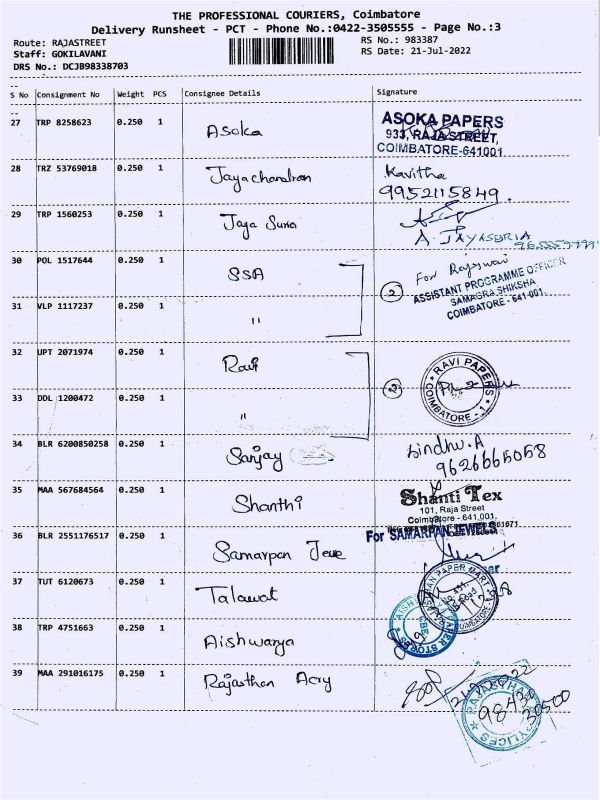 THE PROFESSIONAL COURIERS, Coimbatore
Delivery Runsheet - PCT - Phone No.:0422-3505555 - Page No.:3
Route: RAJASTREET
Staff: GOKILAVANI
DRS No.: DCJB98338703
RS No.: 983387
RS Date: 21-Jul-2022
S No Consignment No Weight PCS Consignee Details Signature
27 TRP 8258623 0.250 1 Asoka
ASOKA PAPERS
933, RAJA STREET,
COIMBATORE-641001
28 TRZ 53769018 0.250 1 Jayachandran Kavitha
9952115849.
29 TRP 1560253 0.250 1 Jaya Suria
A. JAYASURIA
30 POL 1517644 0.250 1 SSA
2 For Rajeswari
ASSISTANT PROGRAMME OFFICER
SAMAGRA SHIKSHA
COIMBATORE - 641 001.
31 VLP 1117237 0.250 1 "
32 UPT 2071974 0.250 1 Ravi
RAVI PAPERS
COIMBATORE - 1
33 DDL 1200472 0.250 1 "
34 BLR 6200850258 0.250 1 Sanjay Sindhu.A
9626665058
35 MAA 567684564 0.250 1 Shanthi
Shanti Tex
101, Raja Street
Coimbatore - 641 001.
36 BLR 2551176517 0.250 1 Samarpan Jewe
For SAMARPAN JEWELS
37 TUT 6120673 0.250 1 Talawat
PAPER MART
38 TRP 4751663 0.250 1 Aishwarya
39 MAA 291016175 0.250 1 Rajasthan Acry
98430
30500